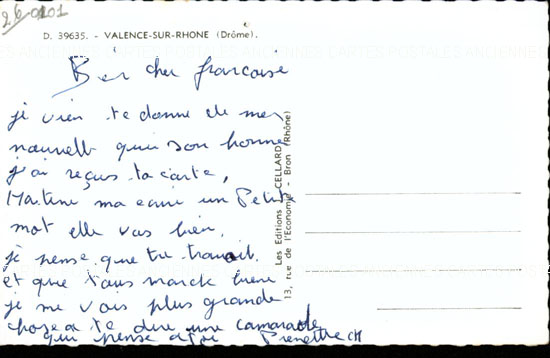 26 0101
D. 39635. - VALENCE-SUR-RHONE (Drôme).
Ben cher francoise
je vien te donne de mes
nouvelle qui son bonne
j'ai reçus ta carte,
Martine ma ecrie un Petit
mot elle vas bien.
je pense que tu travail.
et que tous marche bien
je ne vois plus grande
chose a te dire une camarade
qui pense a toi Pierrette CH
Les Editions CELLARD
13, rue de l'Economie - Bron (Rhône)
ANCIENNES CARTES POSTALES ANCIENNES CARTES POSTALES ANCIENNES